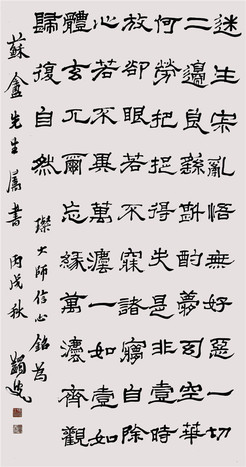 迷生寂亂悟無好惡一切
二邊良繇斟酌夢幻空華
何勞把捉得失是非壹時
放卻眼若不寐諸寢自除
心若不異萬灋一如壹如
體玄兀爾忘緣萬灋齊觀
歸復自然 璨大師信心銘為
蘇盦先生屬書 丙戌秋